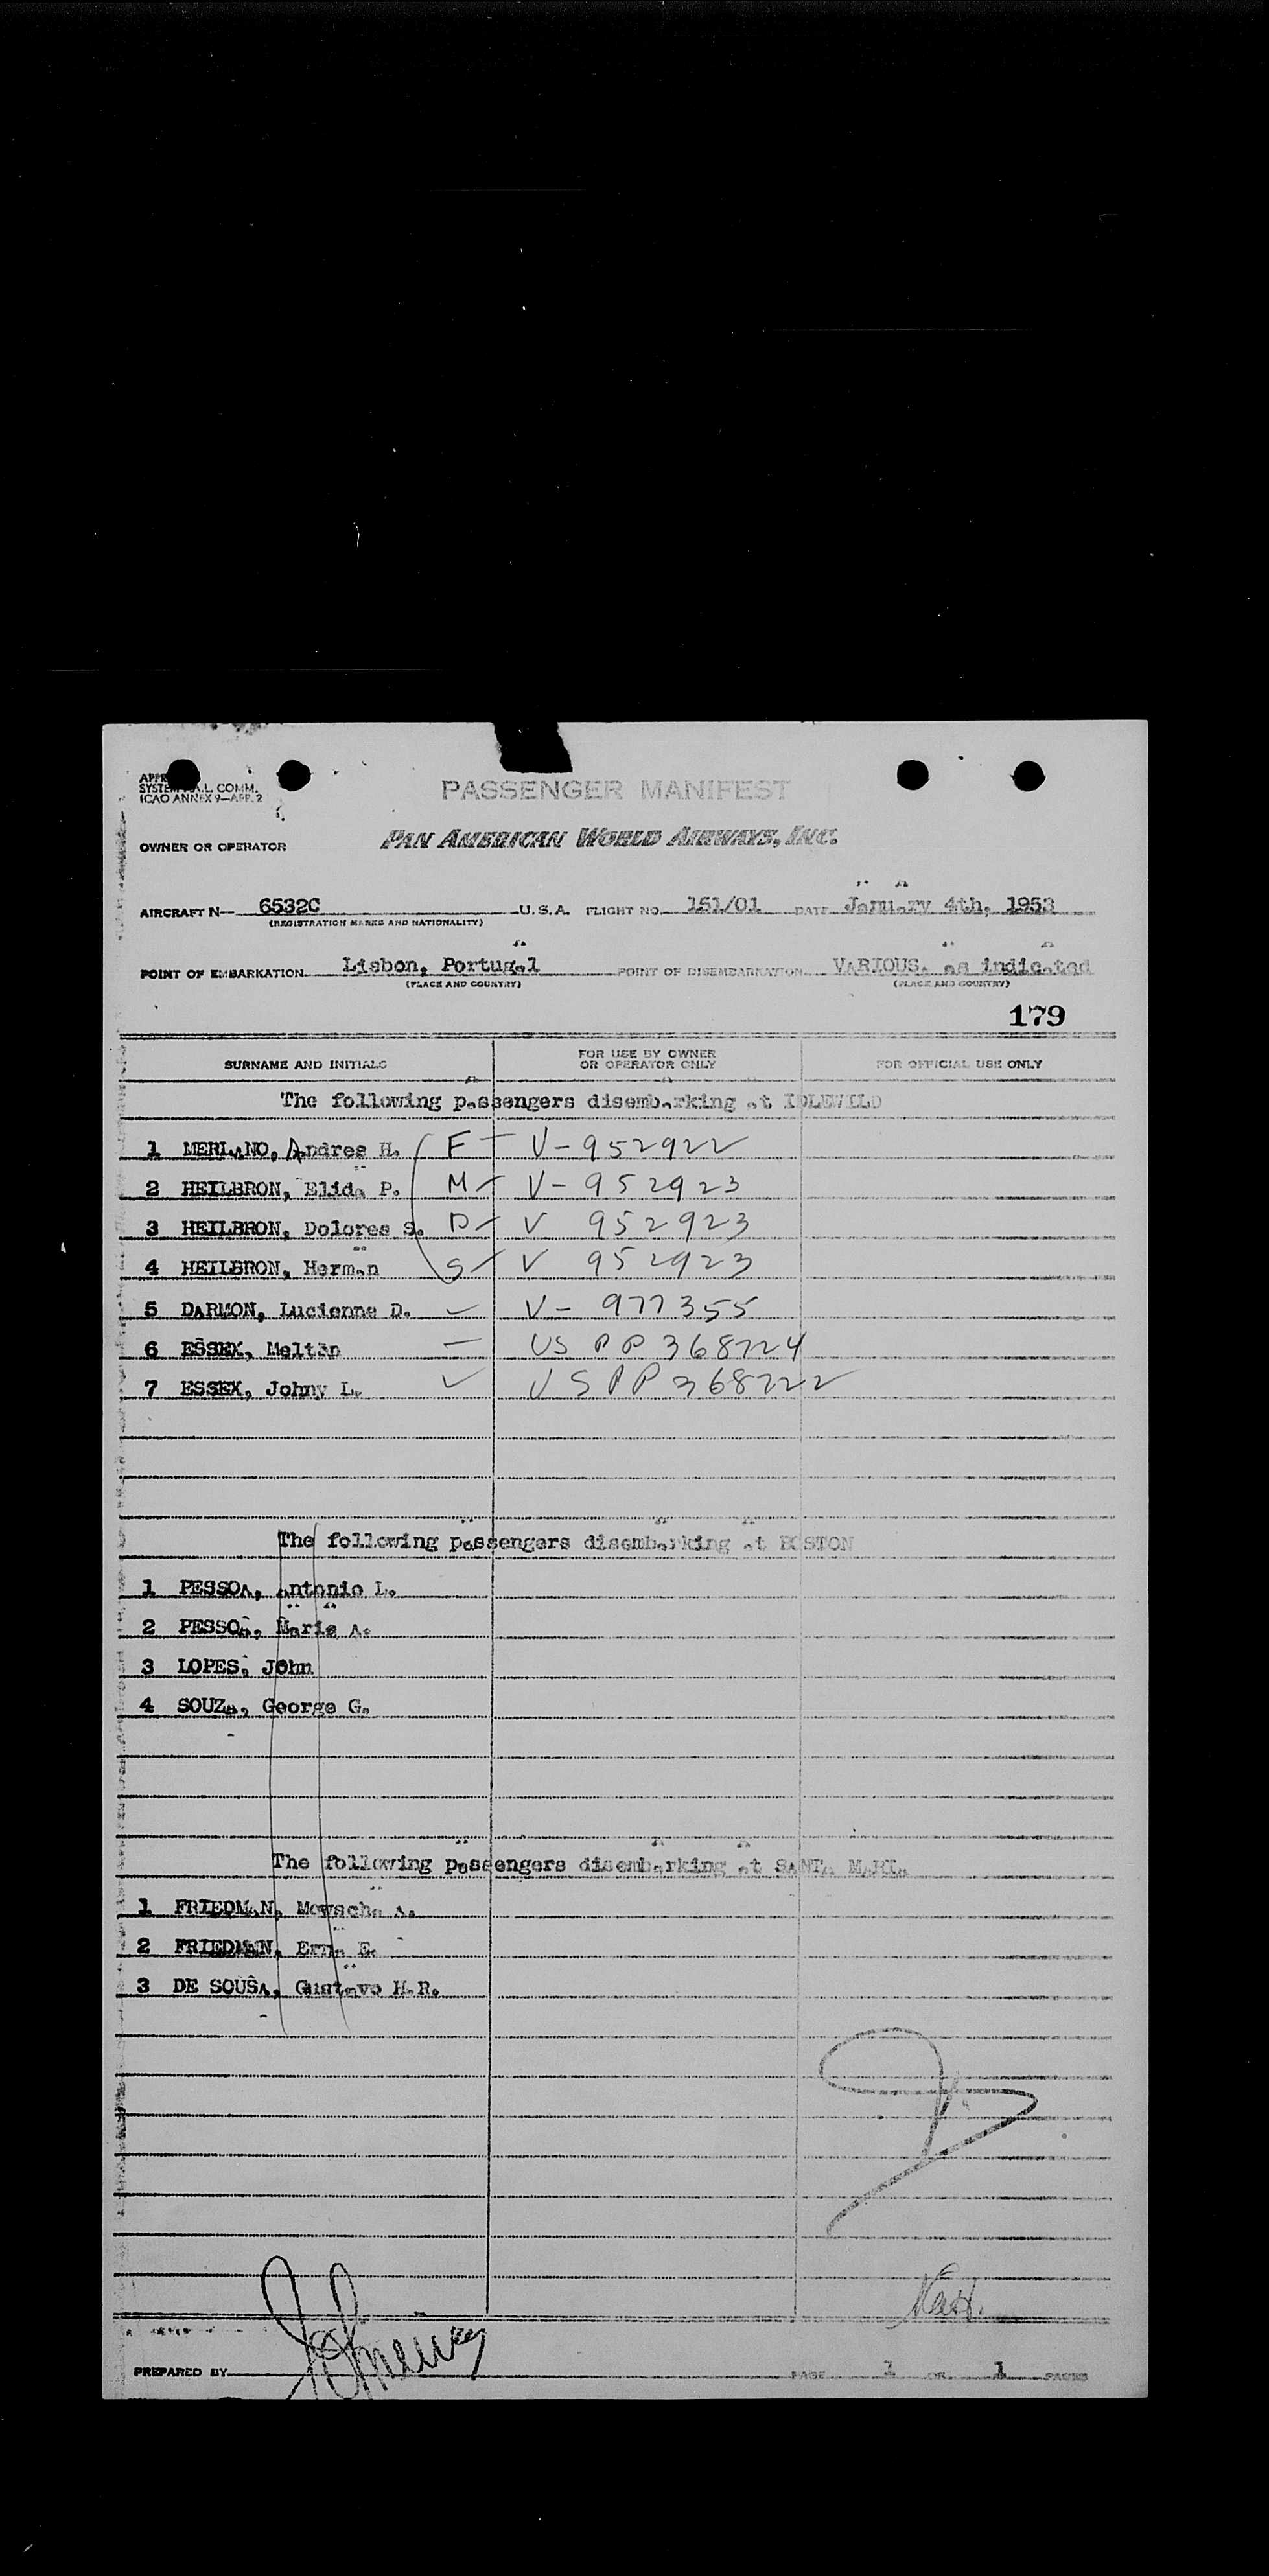 PASSENGER MANIFEST
SYSTEM A.L. COMM.
ICAO ANNEX 9—APP. 2
OWNER OR OPERATOR PAN AMERICAN WORLD AIRWAYS, INC.
AIRCRAFT N— 6532C U.S.A. FLIGHT NO. 151/01 DATE January 4th, 1953
(REGISTRATION MARKS AND NATIONALITY)
POINT OF EMBARKATION Lisbon, Portugal POINT OF DISEMBARKATION VARIOUS, as indicated
(PLACE AND COUNTRY) (PLACE AND COUNTRY)
179
SURNAME AND INITIALS FOR USE BY OWNER OR OPERATOR ONLY FOR OFFICIAL USE ONLY
The following passengers disembarking at IDLEWILD
1 MERLANO, Andres H. F — V-952922
2 HEILBRON, Elida P. M — V-952923
3 HEILBRON, Dolores S. D — V 952923
4 HEILBRON, Herman S — V 952923
5 DARMON, Lucienne D. V- 977355
6 ESSEX, Melton — US PP 368724
7 ESSEX, Johny L. US PP 368722
The following passengers disembarking at BOSTON
1 PESSOA, Antonio L.
2 PESSOA, Maria A.
3 LOPES, John
4 SOUZA, George G.
The following passengers disembarking at SANTA MARIA
1 FRIEDMAN, Mowscha A.
2 FRIEDMAN, Erna E.
3 DE SOUSA, Gustavo H.R.
PREPARED BY PAGE 1 OF 1 PAGES